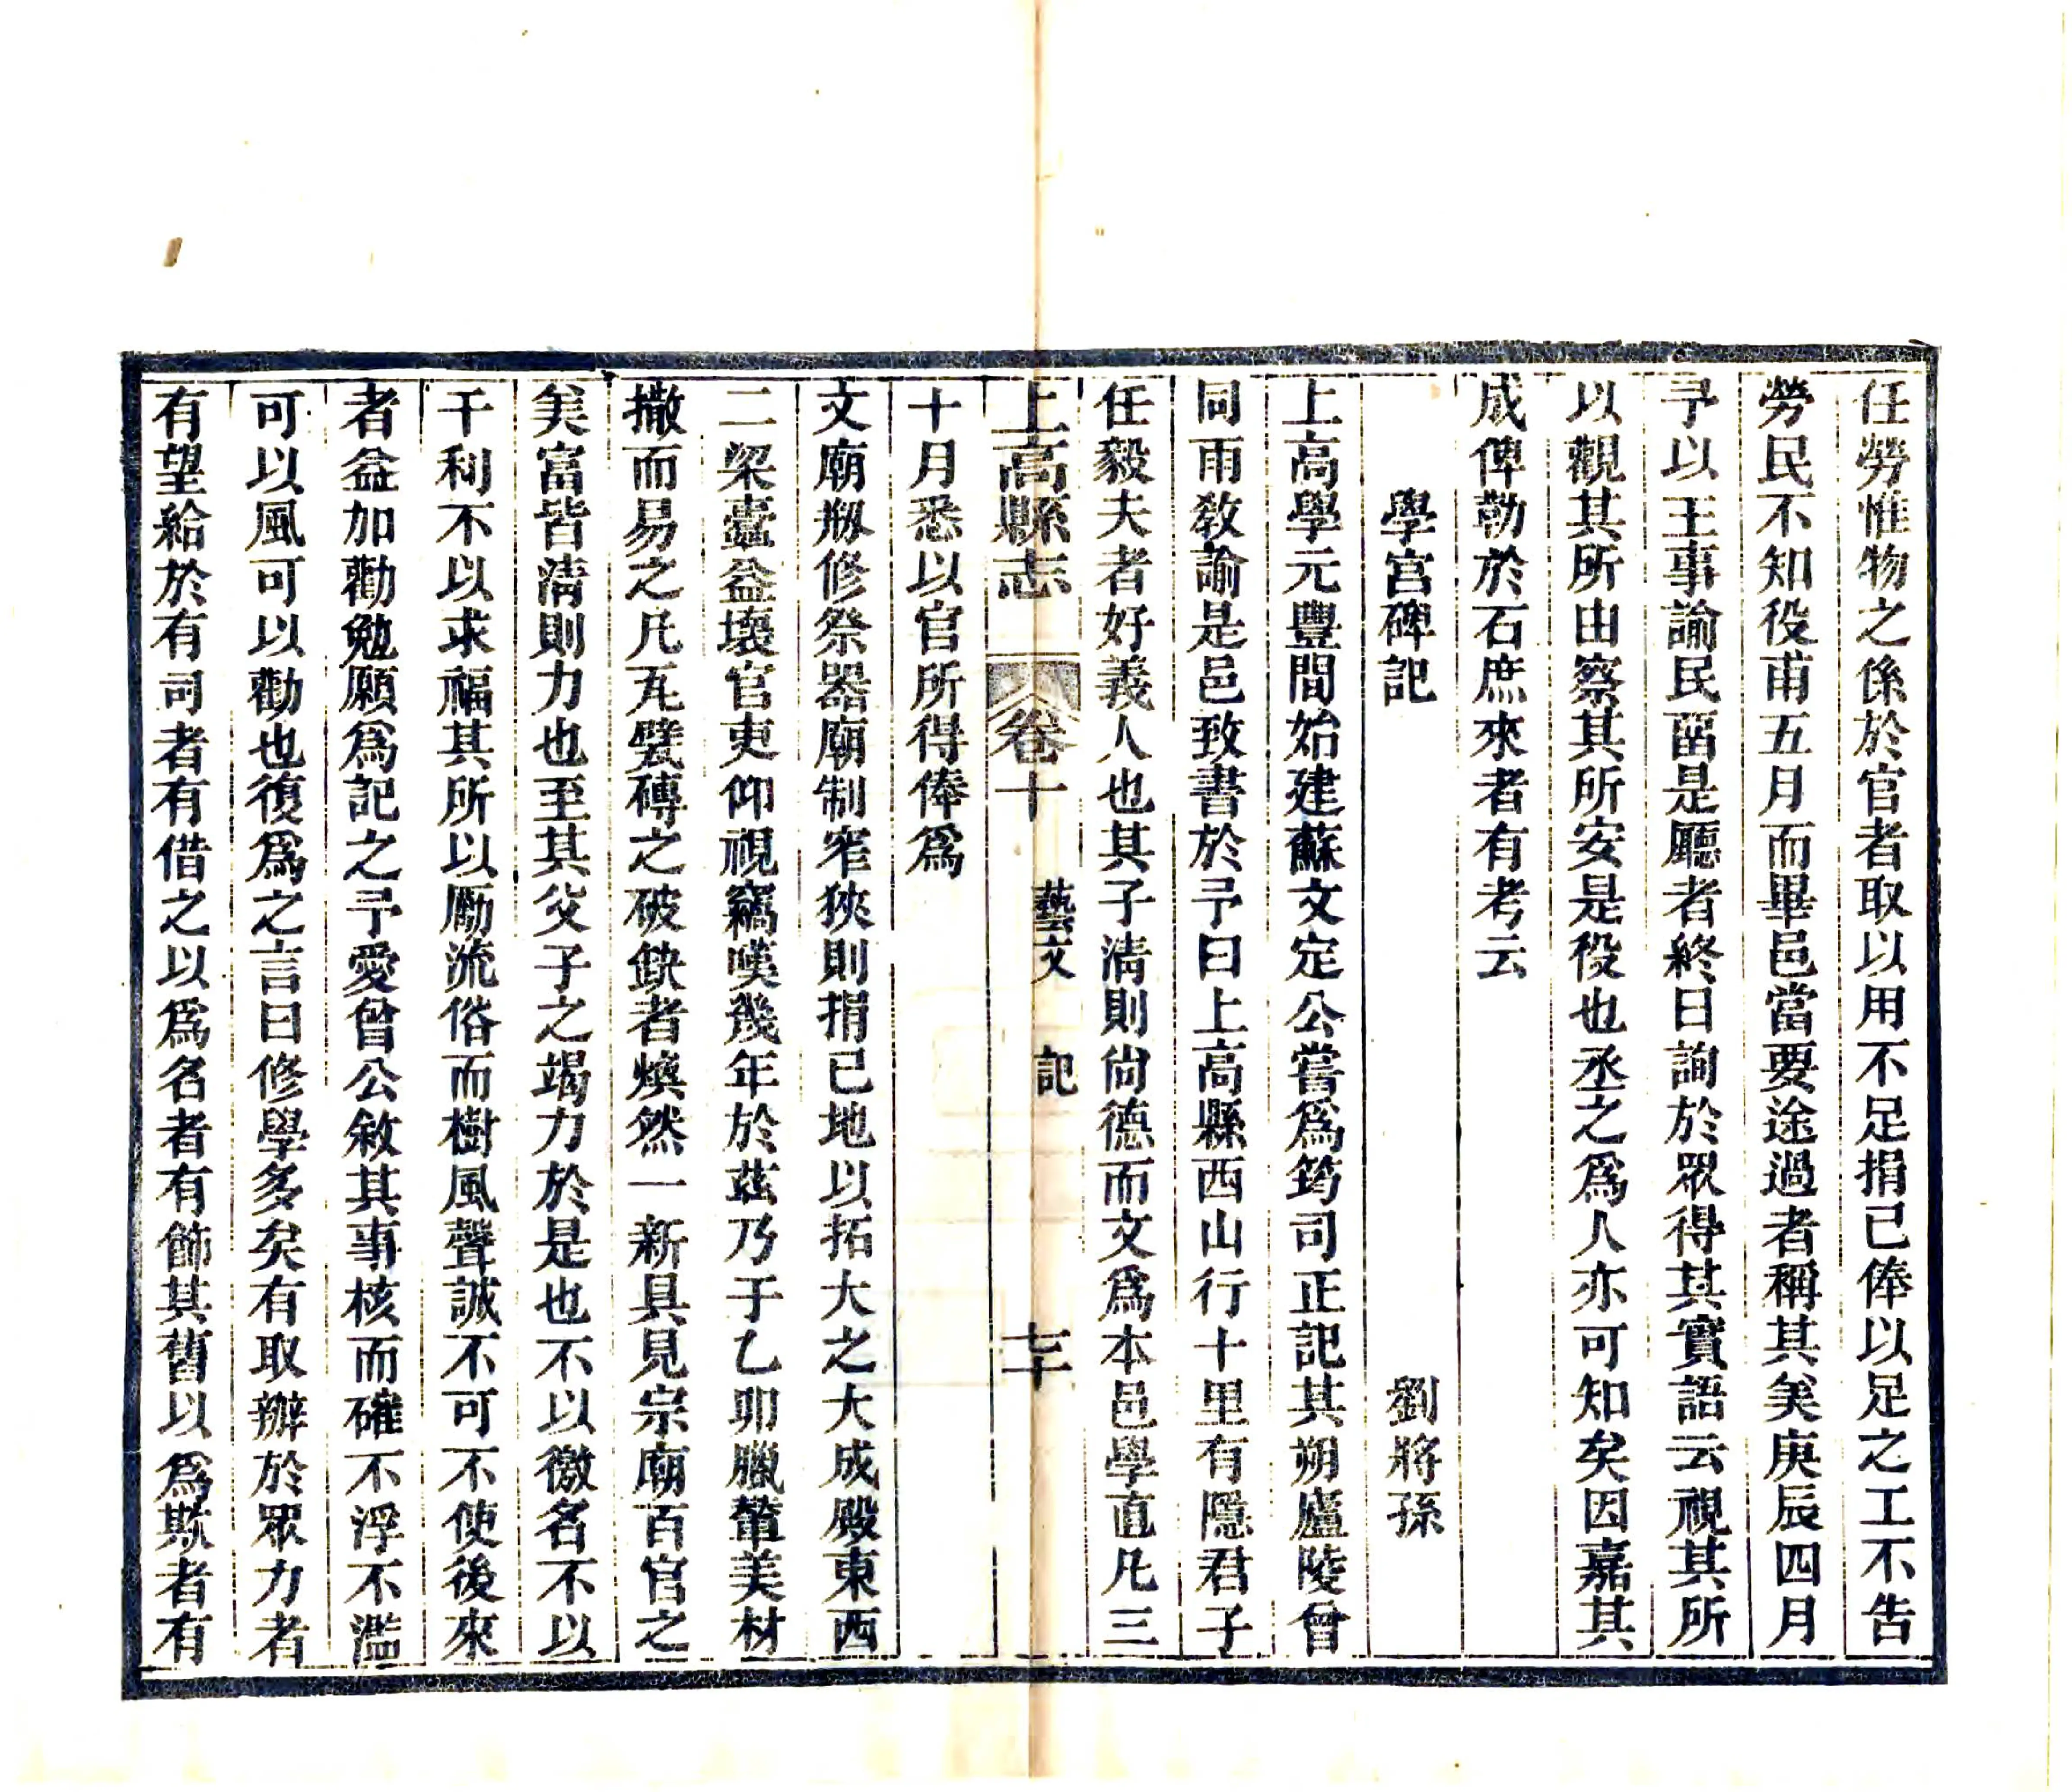 任勞惟物之係於官者取以用不足捐已俸以足之工不告
勞民不知役甫五月而畢邑當要途過者稱其美庚辰四月
予以王事諭民畱是廳者終日詢於眾得其實語云視其所
以觀其所由察其所安是役也丞之爲人亦可知矣因嘉其
成俾勒於石庶來者有考云
學宮碑記 劉將孫
上高學元豐間始建蘇文定公嘗爲筠司正記其朔廬陵曾
同雨教諭是邑致書於予曰上高縣西山行十里有隱君子
任毅夫者好義人也其子清則尙德而文爲本邑學直凡三
上高縣志 卷十 藝文 記 七十
十月悉以官所得俸爲
文廟剏修祭器廟制窄狹則捐已地以拓大之大成殿東西
二梁蠹益壞官吏仰視竊嘆幾年於茲乃于乙卯臘輦美材
撤而易之凡瓦甓磚之破缺者煥然一新具見宗廟百官之
美富皆清則力也至其父子之竭力於是也不以徼名不以
干利不以求福其所以勵流俗而樹風聲誠不可不使後來
者益加勸勉願爲記之予愛曾公敘其事核而確不浮不濫
可以風可以勸也復爲之言曰修學多矣有取辦於眾力者
有望給於有司者有借之以爲名者有飾其舊以爲欺者有